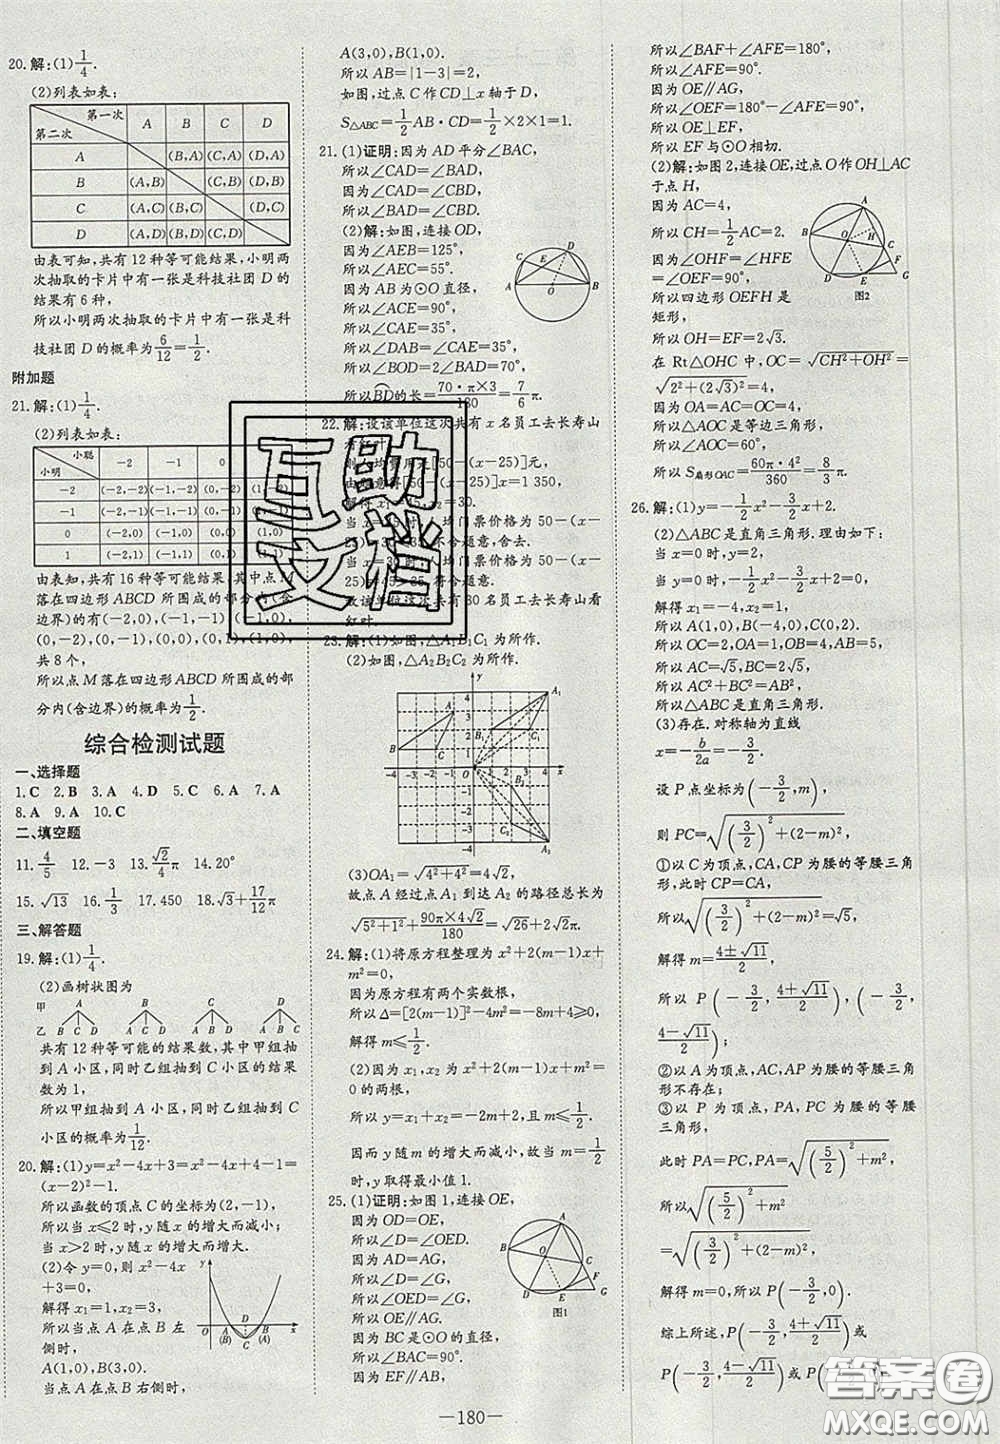 20.解:(1)1/4.
(2)列表如表:
第一次 A B C D
第二次
A (B,A) (C,A) (D,A)
B (A,B) (C,B) (D,B)
C (A,C) (B,C) (D,C)
D (A,D) (B,D) (C,D)
由表可知,共有12种等可能结果,小明两
次抽取的卡片中有一张是科技社团D的
结果有6种,
所以小明两次抽取的卡片中有一张是
科技社团D的概率为6/12=1/2.
附加题
21.解:(1)1/4.
(2)列表如表:
小聪 -2 -1 0
小明
-2 (-2,-2) (-1,-2) (0,-2)
-1 (-2,-1) (-1,-1) (0,-1)
0 (-2,0) (-1,0) (0,0)
1 (-2,1) (-1,1) (0,1)
由表知,共有16种等可能结果,其中点M
落在四边形ABCD所围成的部分内(含
边界)的有(-2,0),(-1,-1),(-1,0),
(0,-2),(0,-1),(0,0),(0,1),(1,0),
共8个,
所以点M落在四边形ABCD所围成的部
分内(含边界)的概率为1/2.
综合检测试题
一、选择题
1.C 2.B 3.A 4.D 5.C 6.A 7.A
8.A 9.A 10.C
二、填空题
11.4/5 12.-3 13.√2/4π 14.20°
15.√13 16.1/3 17.450 18.√3+17/12π
三、解答题
19.解:(1)1/4.
(2)画树状图为
甲 A B C D
乙 B C D A C D A B D A B C
共有12种等可能的结果数,其中甲组抽
到A小区,同时乙组抽到C小区的结果
数为1,
所以甲组抽到A小区,同时乙组抽到C
小区的概率为1/12.
20.解:(1)y=x²-4x+3=x²-4x+4-1=
(x-2)²-1.
所以函数的顶点C的坐标为(2,-1),
所以当x≤2时,y随x的增大而减小;
当x>2时,y随x的增大而增大.
(2)令y=0,可得x²-4x
+3=0,
解得x₁=1,x₂=3,
所以当点A在点B左
侧时,
A(1,0),B(3,0).
当点A在点B右侧时,
y O A (B) B (A) C x
A(3,0),B(1,0).
所以AB=|1-3|=2.
如图,过点C作CD⊥x轴于D,
S△ABC=1/2AB·CD=1/2×2×1=1.
21.(1)证明:因为AD平分∠BAC,
所以∠CAD=∠BAD.
因为∠CAD=∠CBD,
所以∠BAD=∠CBD.
(2)解:如图,连接OD,
因为∠AEB=125°,
所以∠AEC=55°.
因为AB为⊙O直径,
所以∠ACE=90°,
所以∠CAE=35°,
所以∠DAB=∠CAE=35°,
所以∠BOD=2∠BAD=70°,
所以BD的长=70·π×3/180=7/6π.
C D E A O B
22.解:设该单位这次共有x名员工去长寿山
解得x₁=45,x₂=30.
故该单位这次共有30名员工去长寿山看
红叶.
23.解:(1)如图,△A₁B₁C₁为所作.
(2)如图,△A₂B₂C₂为所作.
(3)OA₁=√4²+4²=4√2,
故点A经过点A₁到达A₂的路径总长为
√5²+1²+90π×4√2/180=√26+2√2π.
24.解:(1)将原方程整理为x²+2(m-1)x+
m²=0.
因为原方程有两个实数根,
所以Δ=[2(m-1)]²-4m²=-8m+4≥0,
所以m≤1/2.
(2)因为x₁,x₂为x²+2(m-1)x+m²=
0的两根,
所以y=x₁+x₂=-2m+2,且m≤1/2.
因而y随m的增大而减小,故当m=1/2
时,y取得最小值1.
25.(1)证明:如图1,连接OE,
因为OD=OE,
所以∠D=∠OED.
因为AD=AG,
所以∠D=∠G,
所以∠OED=∠G,
所以OE∥AG,
因为BC是⊙O的直径,
所以∠BAC=90°.
因为EF∥AB,
A B O C F D E G
图1
所以∠BAF+∠AFE=180°,
所以∠AFE=90°.
因为OE∥AG,
所以∠OEF=180°-∠AFE=90°,
所以OE⊥EF,
所以EF与⊙O相切.
(2)解:如图2,连接OE,过点O作OH⊥AC
于点H,
因为AC=4,
所以CH=1/2AC=2.
因为∠OHF=∠HFE
=∠OEF=90°,
所以四边形OEFH是
矩形,
所以OH=EF=2√3.
在Rt△OHC中,OC=√CH²+OH²=
√2²+(2√3)²=4.
因为OA=OC=AC=4,
所以△AOC是等边三角形,
所以∠AOC=60°.
所以S扇形OAC=60π·4²/360=8/3π.
A B O H C F D E G
图2
26.解:(1)y=-1/2x²-3/2x+2.
(2)△ABC是直角三角形.理由如下:
当x=0时,y=2,
当y=0时,-1/2x²-3/2x+2=0,
解得x₁=-4,x₂=1,
所以A(1,0),B(-4,0),C(0,2).
所以OA=1,OB=4,OC=2,AB=5.
所以AC=√5,BC=2√5.
所以AC²+BC²=AB²,
所以△ABC是直角三角形.
(3)存在.对称轴为直线
x=-b/2a=-3/2.
设P点坐标为(-3/2,m),
则PC=√(-3/2)²+(2-m)²,
①以C为顶点,CA,CP为腰的等腰三角
形,此时CP=CA,
所以√(-3/2)²+(2-m)²=√5,
解得m=4±√11/2,
所以P(-3/2,4+√11/2),(-3/2,
4-√11/2);
②以A为顶点,AC,AP为腰的等腰三角
形不存在;
③以P为顶点,PA,PC为腰的等腰
三角形,
此时PA=PC,所以PA=√(5/2)²+m²,
所以√(5/2)²+m²
=√(-3/2)²+(2-m)²,
解得m=0,所以P(-3/2,0)
综上所述,P(-3/2,4+√11/2)或
P(-3/2,4-√11/2)或P(-3/2,0)
—180—
互助
文档
答案圈
MXQE.COM